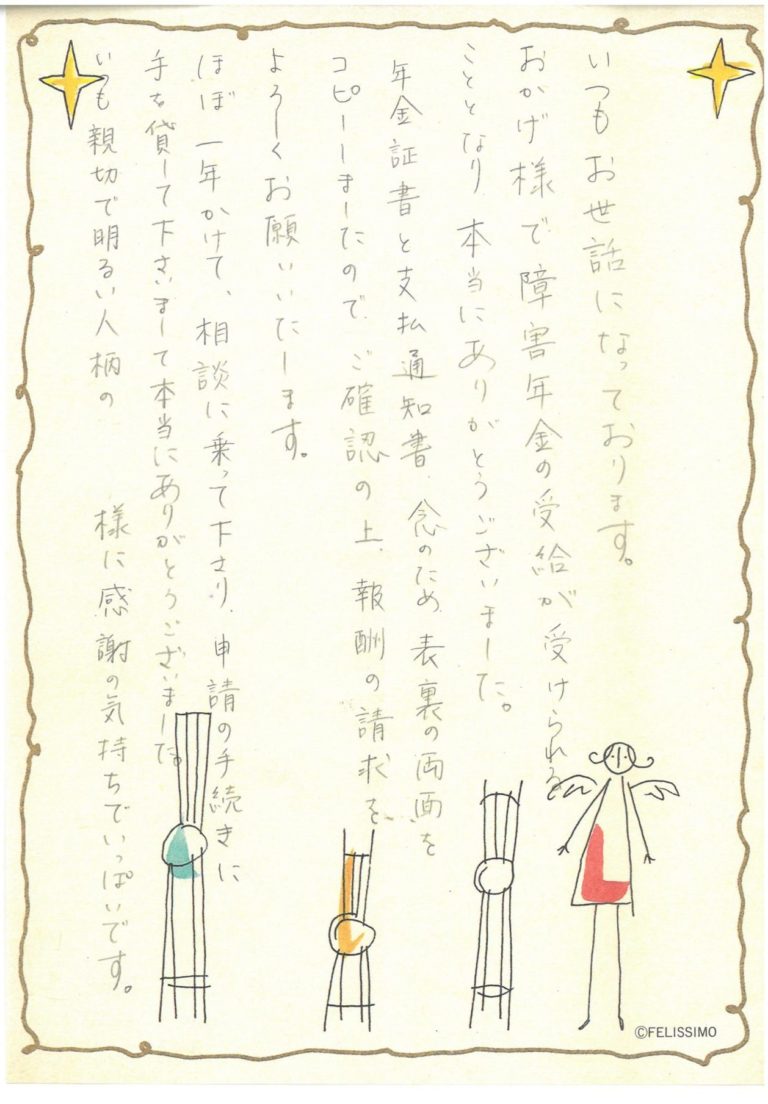 いつもお世話になっております。
おかげ様で障害年金の受給が受けられる
こととなり、本当にありがとうございました。
年金証書と支払通知書、念のため、表裏の両面を
コピーしましたので、ご確認の上、報酬の請求を
よろしくお願いいたします。
ほぼ一年かけて、相談に乗って下さり、申請の手続きに
手を貸して下さいまして本当にありがとうございました。
いつも親切で明るい人柄の　　　様に感謝の気持ちでいっぱいです。
©FELISSIMO